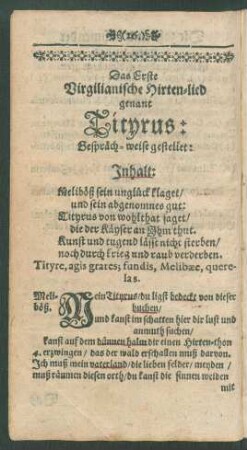 Das Erste
Virgilianische Hirten-lied
genant
Tityrus:
Gespräch-weise gestellet:
Inhalt:
Meliböß sein unglück klaget/
und sein abgenomnes gut:
Tityrus von wohlthat saget/
die der Käyser an Ihm thut.
Kunst und tugend lässt nicht sterben/
noch durch krieg und raub verderben.
Tityre, agis grates; fundis, Melibæe, quere-
las.
Meli-
böß.
Mein Tityrus/ du ligst bedeckt von dieser
buchen/
und kanst im schatten hier dir lust und
anmuth suchen/
kanst auf dem dünnen halm dir einen Hirten-thon
4. erzwingen/ das der wald erschallen muß darvon.
Ich muß mein vaterland/ die lieben felder/ meyden/
muß räumen diesen orth/ du kanst die sinnen weiden
mit